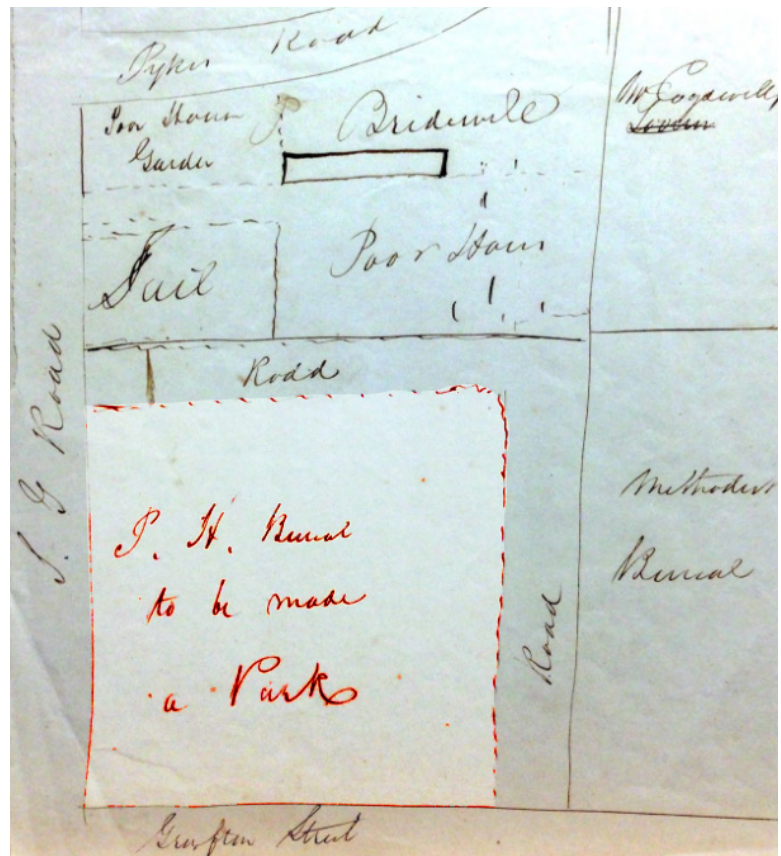 Pykes Road
Poor House
Garder
Bridewell
Mr Cogswells
Jail
Poor Hous
Road
S. G Road
P. H. Burial
to be made
a Park
Road
Methodist
Burial
Grafton Street